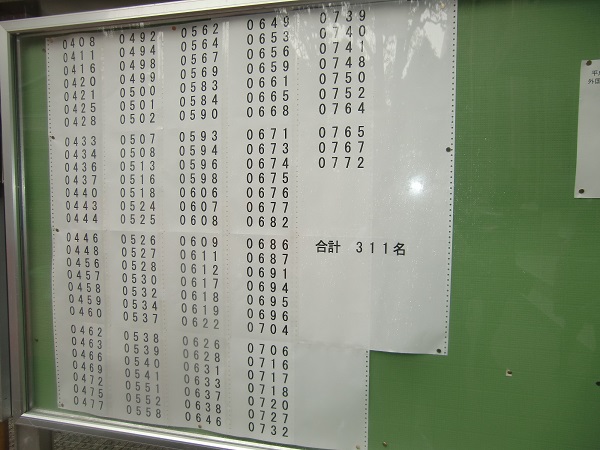 0408
0411
0416
0420
0421
0425
0428
0433
0434
0436
0437
0440
0443
0444
0446
0448
0456
0457
0458
0459
0460
0462
0463
0466
0469
0472
0475
0477
0492
0494
0498
0499
0500
0501
0502
0507
0508
0513
0516
0518
0524
0525
0526
0527
0528
0530
0532
0534
0537
0538
0539
0540
0541
0551
0552
0558
0562
0564
0567
0569
0583
0584
0590
0593
0594
0596
0598
0606
0607
0608
0609
0611
0612
0617
0618
0619
0622
0626
0628
0631
0633
0637
0638
0646
0649
0653
0656
0659
0661
0665
0668
0671
0673
0674
0675
0676
0677
0682
0686
0687
0691
0694
0695
0696
0704
0706
0716
0717
0718
0720
0727
0732
0739
0740
0741
0748
0750
0752
0764
0765
0767
0772
合計 311名
外国